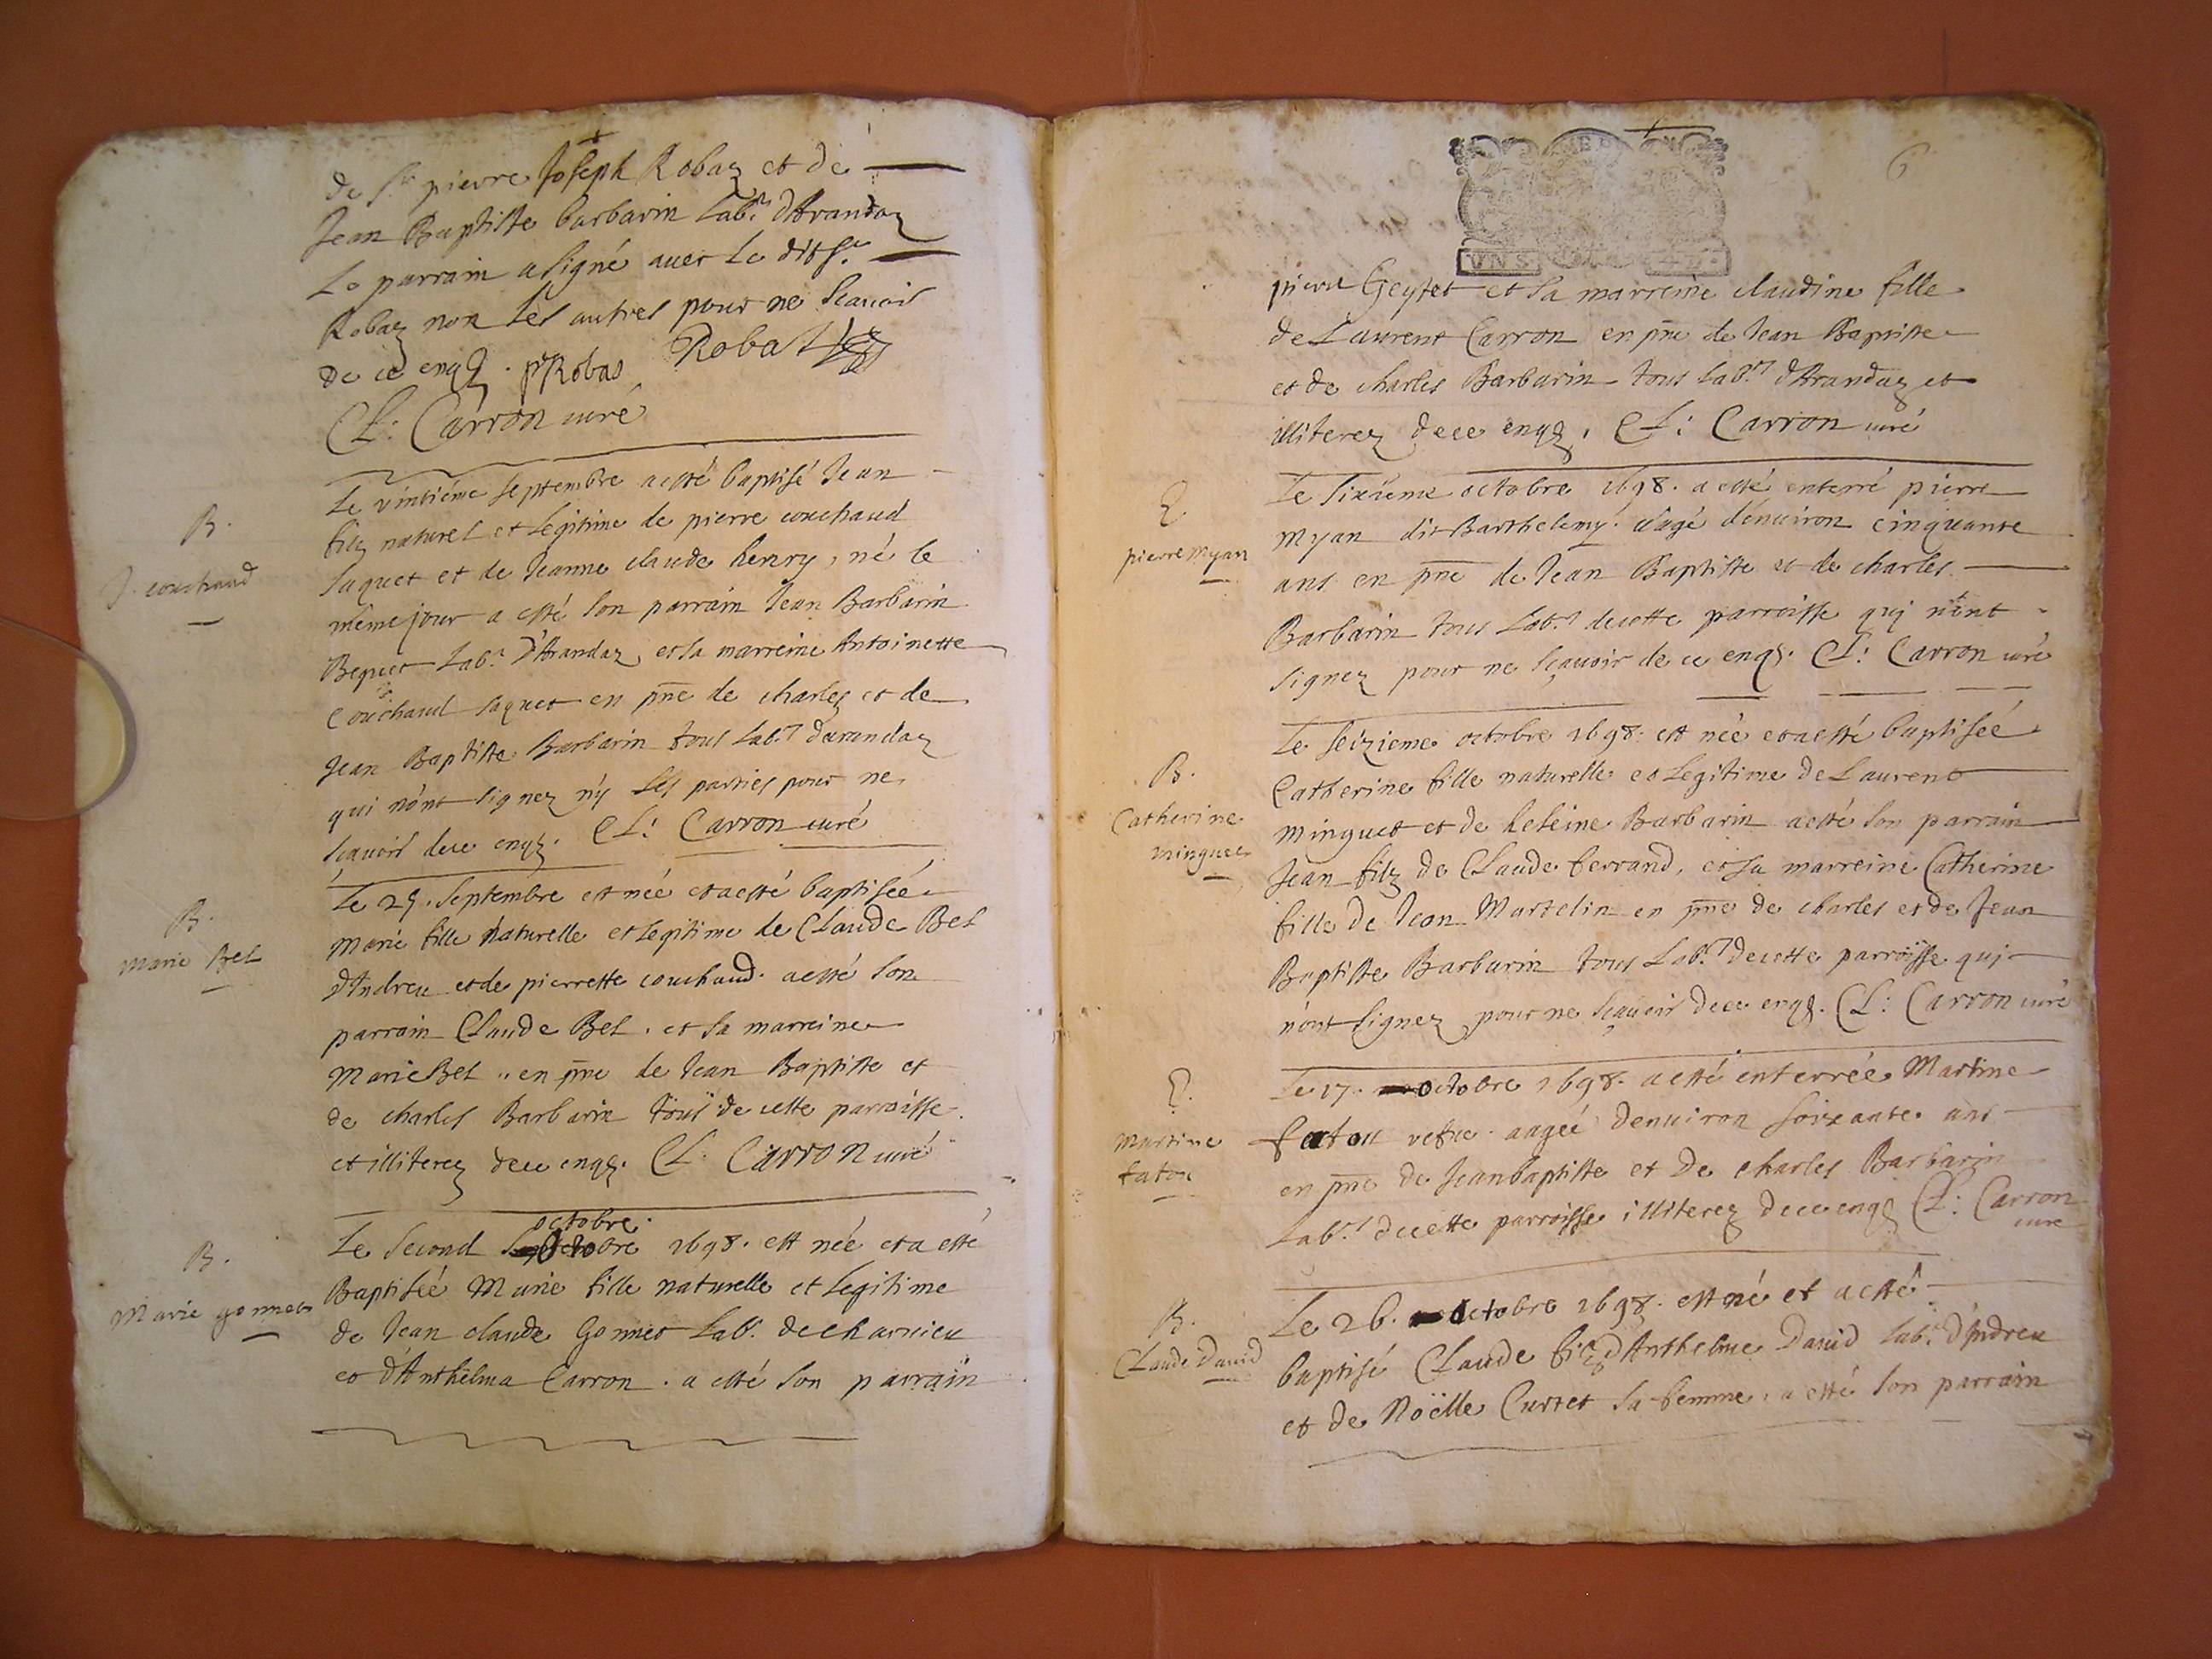 de Sr pierre Joseph Robaz et de
Jean Baptiste barbarin Labr. d'Arandaz
Le parrain a signé avec Le dit Sr.
Robaz non Les autres pour ne scavoir
de ce enqs. p Robas Robat
CL: Carron curé
B.
J. couchaud
Le vintiéme septembre a esté baptisé Jean
filz naturel et Legitime de pierre couchaud
saquet et de Jeanne claude henry, né le
même jour a esté son parrain Jean Barbarin
Bequet Labr. d'Arandaz, et sa marreine Antoinette
Couchaud saquet en pñe de charles et de
Jean Baptiste Barbarin tous Labrs d'arandaz
qui n'ont signez n'y Les parties pour ne
scavoir de ce enqs. CL: Carron curé
B.
Marie Bel
Le 29. Septembre est née et a esté baptisée
Marie fille naturelle et Legitime de Claude Bel
d'Andreu et de pierrette couchaud. a esté son
parrain Claude Bel. et sa marreine
Marie Bel. en pñe de Jean Baptiste et
de charles Barbarin tous de cette parroisse.
et illiterez de ce enqs. CL: Carron curé
B.
Marie gonnet
octobre.
Le Second 1698. est née et a esté
Baptisée Marie fille naturelle et Legitime
de Jean claude Gonnet Labr. de charnieu
et d'Anthelma Carron. a esté son parrain
6
pierre Geytet et sa marreine claudine fille
de Laurent Carron en pñe de Jean Baptiste
et de charles Barbarin tous Labrs d'Arandaz et
illiterez de ce enqs. CL: Carron curé
E.
pierre Myan
Le Sixiéme octobre 1698. a esté enterré pierre
Myan dit Barthelemy. âagé d'environ cinquante
ans en pñe de Jean Baptiste et de charles
Barbarin tous Labrs de cette parroisse quj n'ont
signez pour ne sçavoir de ce enqs. CL: Carron curé
B.
Catherine
minguet
Le Seizieme octobre 1698. est née et a esté baptisée
Catherine fille naturelle et Legitime de Laurent
minguet et de heleine Barbarin a esté son parrain
Jean filz de Claude ferrand, et sa marreine Catherine
fille de Jean Martelin en pñe de charles et de Jean
Baptiste Barbarin tous Labrs de cette parroisse quj
n'ont signez pour ne sçavoir de ce enqs. CL: Carron curé
E.
Martine
fatou
Le 17. octobre 1698. a esté enterrée Martine
fatou vefve. aagée d'environ soixante ans
en pñe de Jean baptiste et de charles Barbarin
Labrs. de cette parroisse illiterez de ce enqs CL: Carron
curé
B.
Claude David
Le 26. octobre 1698. est né et a esté
baptisé Claude filz d'Anthelme David Labr. d'Andreu
et de Noëlle Curtet sa femme. a esté son parrain